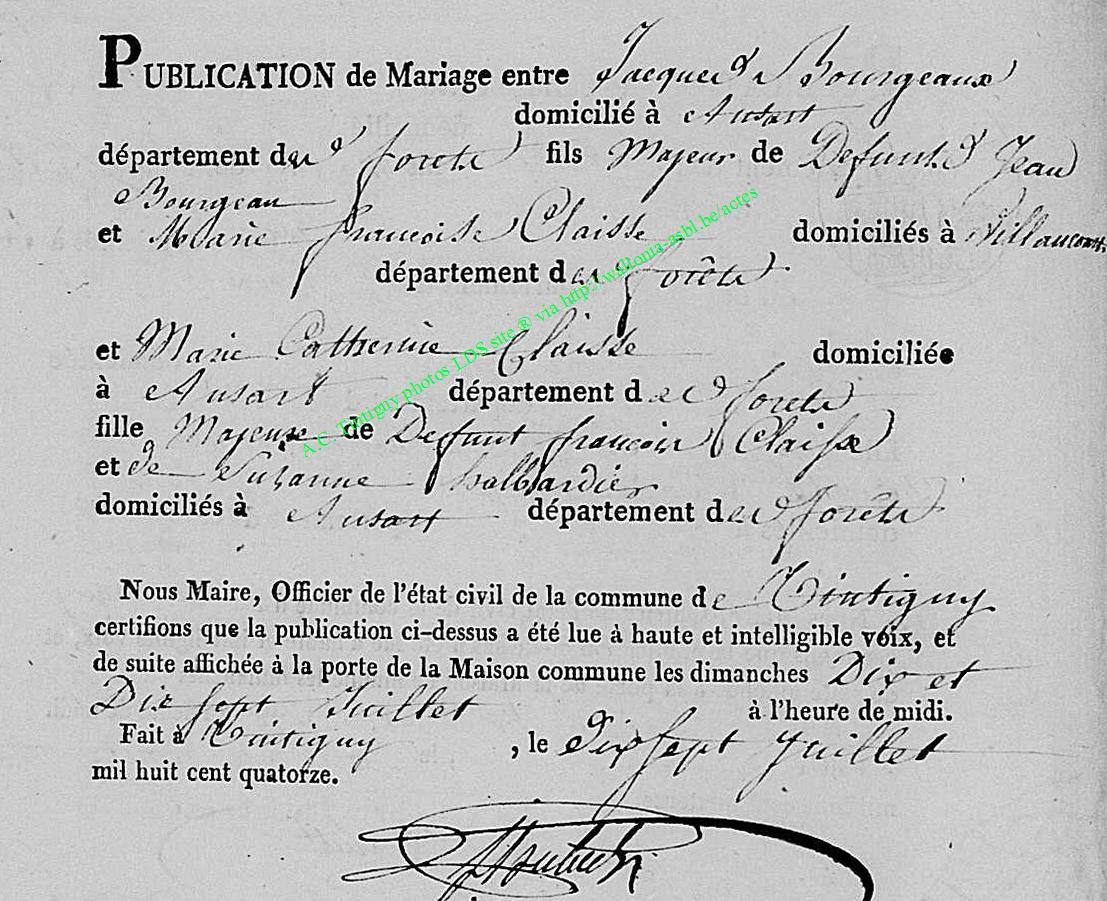 PUBLICATION de Mariage entre Jacques Bourgeaux
domicilié à Ansart
département des forets fils Majeur de Defunts Jean
Bourgeau
et Marie françoise Claisse domiciliés à Villancourt
département des forêts
et Marie Catherine Claisse domiciliée
à Ansart département des forets
fille Majeure de Defunt françois Claisse
et de Suzanne halbardier
domiciliés à Ansart département des forêts
Nous Maire, Officier de l'état civil de la commune de Tintigny
certifions que la publication ci-dessus a été lue à haute et intelligible voix, et
de suite affichée à la porte de la Maison commune les dimanches Dix et
Dix sept Juillet à l'heure de midi.
Fait à Tintigny, le dix sept Juillet
mil huit cent quatorze.
A.C. Tintigny photos LDS site ® via http://wallonia-asbl.be/actes